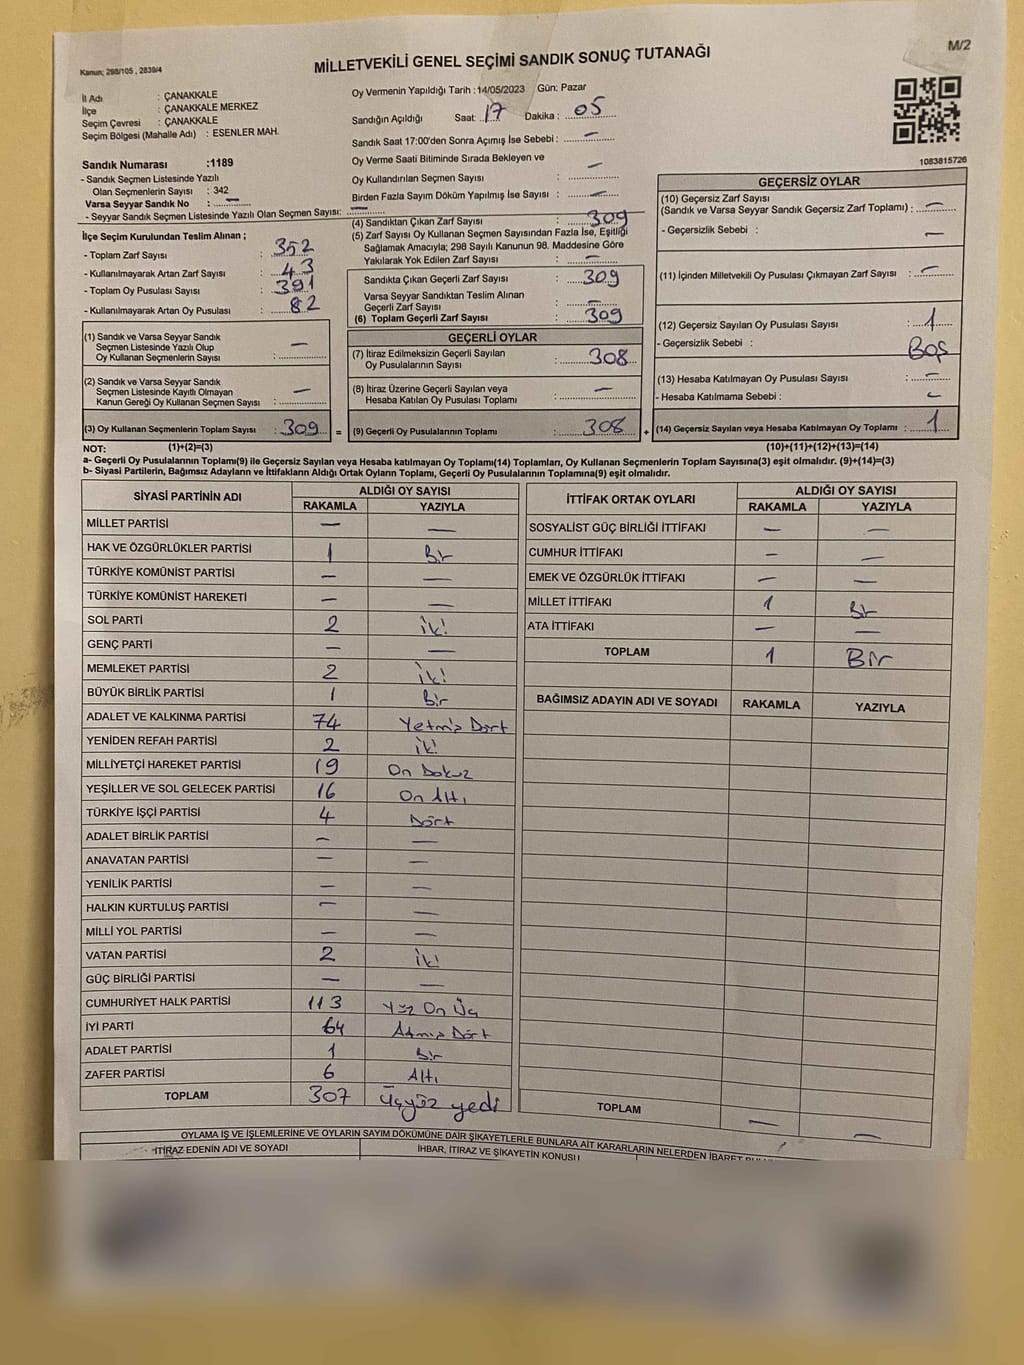 M/2
Kanun; 298/105 , 2839/4
MİLLETVEKİLİ GENEL SEÇİMİ SANDIK SONUÇ TUTANAĞI
İl Adı : ÇANAKKALE
İlçe : ÇANAKKALE MERKEZ
Seçim Çevresi : ÇANAKKALE
Seçim Bölgesi (Mahalle Adı) : ESENLER MAH.
Sandık Numarası :1189
- Sandık Seçmen Listesinde Yazılı
Olan Seçmenlerin Sayısı : 342
Varsa Seyyar Sandık No : —
- Seyyar Sandık Seçmen Listesinde Yazılı Olan Seçmen Sayısı: —
İlçe Seçim Kurulundan Teslim Alınan ;
- Toplam Zarf Sayısı : 352
- Kullanılmayarak Artan Zarf Sayısı : 43
- Toplam Oy Pusulası Sayısı : 391
- Kullanılmayarak Artan Oy Pusulası : 82
(1) Sandık ve Varsa Seyyar Sandık
Seçmen Listesinde Yazılı Olup
Oy Kullanan Seçmenlerin Sayısı : —
(2) Sandık ve Varsa Seyyar Sandık
Seçmen Listesinde Kayıtlı Olmayan
Kanun Gereği Oy Kullanan Seçmen Sayısı : —
(3) Oy Kullanan Seçmenlerin Toplam Sayısı : 309 =
Oy Vermenin Yapıldığı Tarih :14/05/2023 Gün: Pazar
Sandığın Açıldığı Saat: 17 Dakika : 05
Sandık Saat 17:00'den Sonra Açımış İse Sebebi : —
Oy Verme Saati Bitiminde Sırada Bekleyen ve
Oy Kullandırılan Seçmen Sayısı : —
Birden Fazla Sayım Döküm Yapılmış İse Sayısı : —
(4) Sandıktan Çıkan Zarf Sayısı : 309
(5) Zarf Sayısı Oy Kullanan Seçmen Sayısından Fazla İse, Eşitliği
Sağlamak Amacıyla; 298 Sayılı Kanunun 98. Maddesine Göre
Yakılarak Yok Edilen Zarf Sayısı : —
Sandıkta Çıkan Geçerli Zarf Sayısı : 309
Varsa Seyyar Sandıktan Teslim Alınan
Geçerli Zarf Sayısı : —
(6) Toplam Geçerli Zarf Sayısı : 309
GEÇERLİ OYLAR
(7) İtiraz Edilmeksizin Geçerli Sayılan
Oy Pusulalarının Sayısı : 308
(8) İtiraz Üzerine Geçerli Sayılan veya
Hesaba Katılan Oy Pusulası Toplamı : —
(9) Geçerli Oy Pusulalarının Toplamı : 308 +
1083815726
GEÇERSİZ OYLAR
(10) Geçersiz Zarf Sayısı
(Sandık ve Varsa Seyyar Sandık Geçersiz Zarf Toplamı) : —
- Geçersizlik Sebebi : —
(11) İçinden Milletvekili Oy Pusulası Çıkmayan Zarf Sayısı : —
(12) Geçersiz Sayılan Oy Pusulası Sayısı : 1
- Geçersizlik Sebebi : Boş
(13) Hesaba Katılmayan Oy Pusulası Sayısı : —
- Hesaba Katılmama Sebebi : —
(14) Geçersiz Sayılan veya Hesaba Katılmayan Oy Toplamı : 1
NOT: (1)+(2)=(3) (10)+(11)+(12)+(13)=(14)
a- Geçerli Oy Pusulalarının Toplamı(9) ile Geçersiz Sayılan veya Hesaba katılmayan Oy Toplamı(14) Toplamları, Oy Kullanan Seçmenlerin Toplam Sayısına(3) eşit olmalıdır. (9)+(14)=(3)
b- Siyasi Partilerin, Bağımsız Adayların ve İttifakların Aldığı Ortak Oyların Toplamı, Geçerli Oy Pusulalarının Toplamına(9) eşit olmalıdır.
SİYASİ PARTİNİN ADI ALDIĞI OY SAYISI
RAKAMLA YAZIYLA
MİLLET PARTİSİ — —
HAK VE ÖZGÜRLÜKLER PARTİSİ 1 Bir
TÜRKİYE KOMÜNİST PARTİSİ — —
TÜRKİYE KOMÜNİST HAREKETİ — —
SOL PARTİ 2 iki
GENÇ PARTİ — —
MEMLEKET PARTİSİ 2 iki
BÜYÜK BİRLİK PARTİSİ 1 Bir
ADALET VE KALKINMA PARTİSİ 74 Yetmiş Dört
YENİDEN REFAH PARTİSİ 2 iki
MİLLİYETÇİ HAREKET PARTİSİ 19 On Dokuz
YEŞİLLER VE SOL GELECEK PARTİSİ 16 On Altı
TÜRKİYE İŞÇİ PARTİSİ 4 Dört
ADALET BİRLİK PARTİSİ — —
ANAVATAN PARTİSİ — —
YENİLİK PARTİSİ — —
HALKIN KURTULUŞ PARTİSİ — —
MİLLİ YOL PARTİSİ — —
VATAN PARTİSİ 2 iki
GÜÇ BİRLİĞİ PARTİSİ — —
CUMHURİYET HALK PARTİSİ 113 Yüz On Üç
İYİ PARTİ 64 Atmış Dört
ADALET PARTİSİ 1 Bir
ZAFER PARTİSİ 6 Altı
TOPLAM 307 Üçyüz yedi
İTTİFAK ORTAK OYLARI ALDIĞI OY SAYISI
RAKAMLA YAZIYLA
SOSYALİST GÜÇ BİRLİĞİ İTTİFAKI — —
CUMHUR İTTİFAKI — —
EMEK VE ÖZGÜRLÜK İTTİFAKI — —
MİLLET İTTİFAKI 1 Bir
ATA İTTİFAKI — —
TOPLAM 1 Bir
BAĞIMSIZ ADAYIN ADI VE SOYADI RAKAMLA YAZIYLA
TOPLAM — —
OYLAMA İŞ VE İŞLEMLERİNE VE OYLARIN SAYIM DÖKÜMÜNE DAİR ŞİKAYETLERLE BUNLARA AİT KARARLARIN NELERDEN İBARET
İTİRAZ EDENİN ADI VE SOYADI İHBAR, İTİRAZ VE ŞİKAYETİN KONUSU